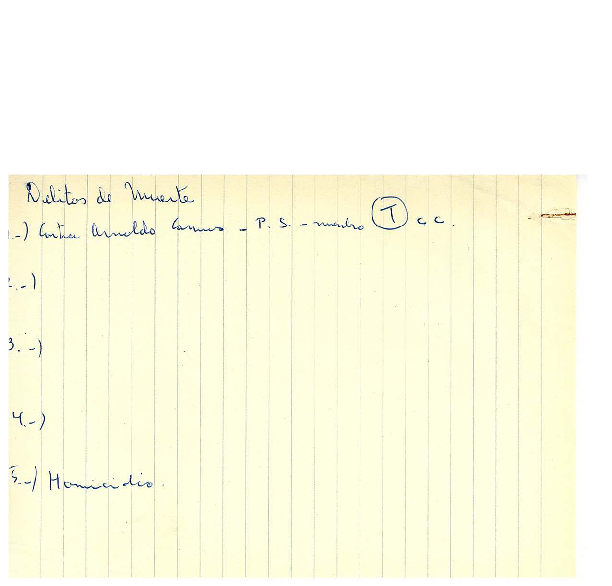 Delitos de Muerte
1.-) Contra Arnoldo Camus - P. S. - miembro T C C.
2.-)
3.-)
4.-)
5.-) Homicidio.